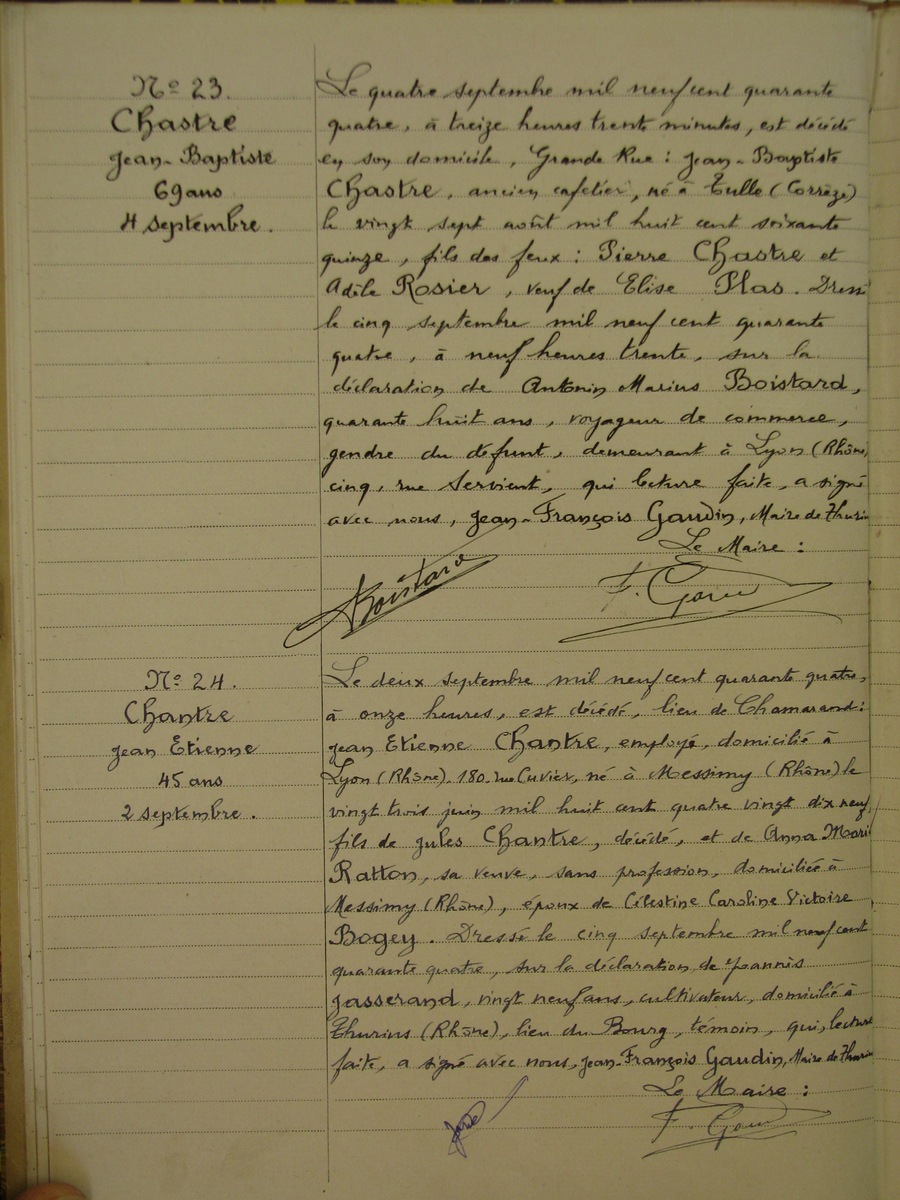 N° 23.
Chastre
Jean-Baptiste
69 ans
4 septembre.
Le quatre septembre mil neuf cent quarante
quatre, à treize heures trente minutes, est décédé
en son domicile, Grande Rue : Jean-Baptiste
Chastre, ancien cafetier, né à Tulle (Corrèze)
le vingt sept août mil huit cent soixante
quinze, fils des feux : Pierre Chastre et
Adèle Rosier, veuf de Elise Plas. Dressé
le cinq septembre mil neuf cent quarante
quatre, à neuf heures trente, sur la
déclaration de Antonin Marius Boistard,
quarante huit ans, voyageur de commerce,
gendre du défunt, demeurant à Lyon (Rhône)
cinq, rue Servient, qui lecture faite, a signé
avec nous, Jean-François Gaudin, Maire de Thurin
Le Maire :
Boistard
F. Gaudin
N° 24.
Chantre
Jean Etienne
45 ans
2 septembre.
Le deux septembre mil neuf cent quarante quatre,
à onze heures, est décédé, lieu de Chamarand :
Jean Etienne Chantre, employé, domicilié à
Lyon (Rhône). 180. rue Cuvier, né à Messimy (Rhône) le
vingt trois juin mil huit cent quatre vingt dix neuf,
fils de Jules Chantre, décédé, et de Anna Mari
Ratton, sa veuve, sans profession, domiciliée à
Messimy (Rhône), époux de Célestine Caroline Victoire
Bogey. Dressé le cinq septembre mil neuf cent
quarante quatre, sur la déclaration de Joannès
Jasserand, vingt neuf ans, cultivateur, domicilié à
Thurins (Rhône), lieu du Bourg, témoin, qui, lecture
faite, a signé avec nous, Jean-François Gaudin, Maire de Thurin
Le Maire :
F. Gaudin